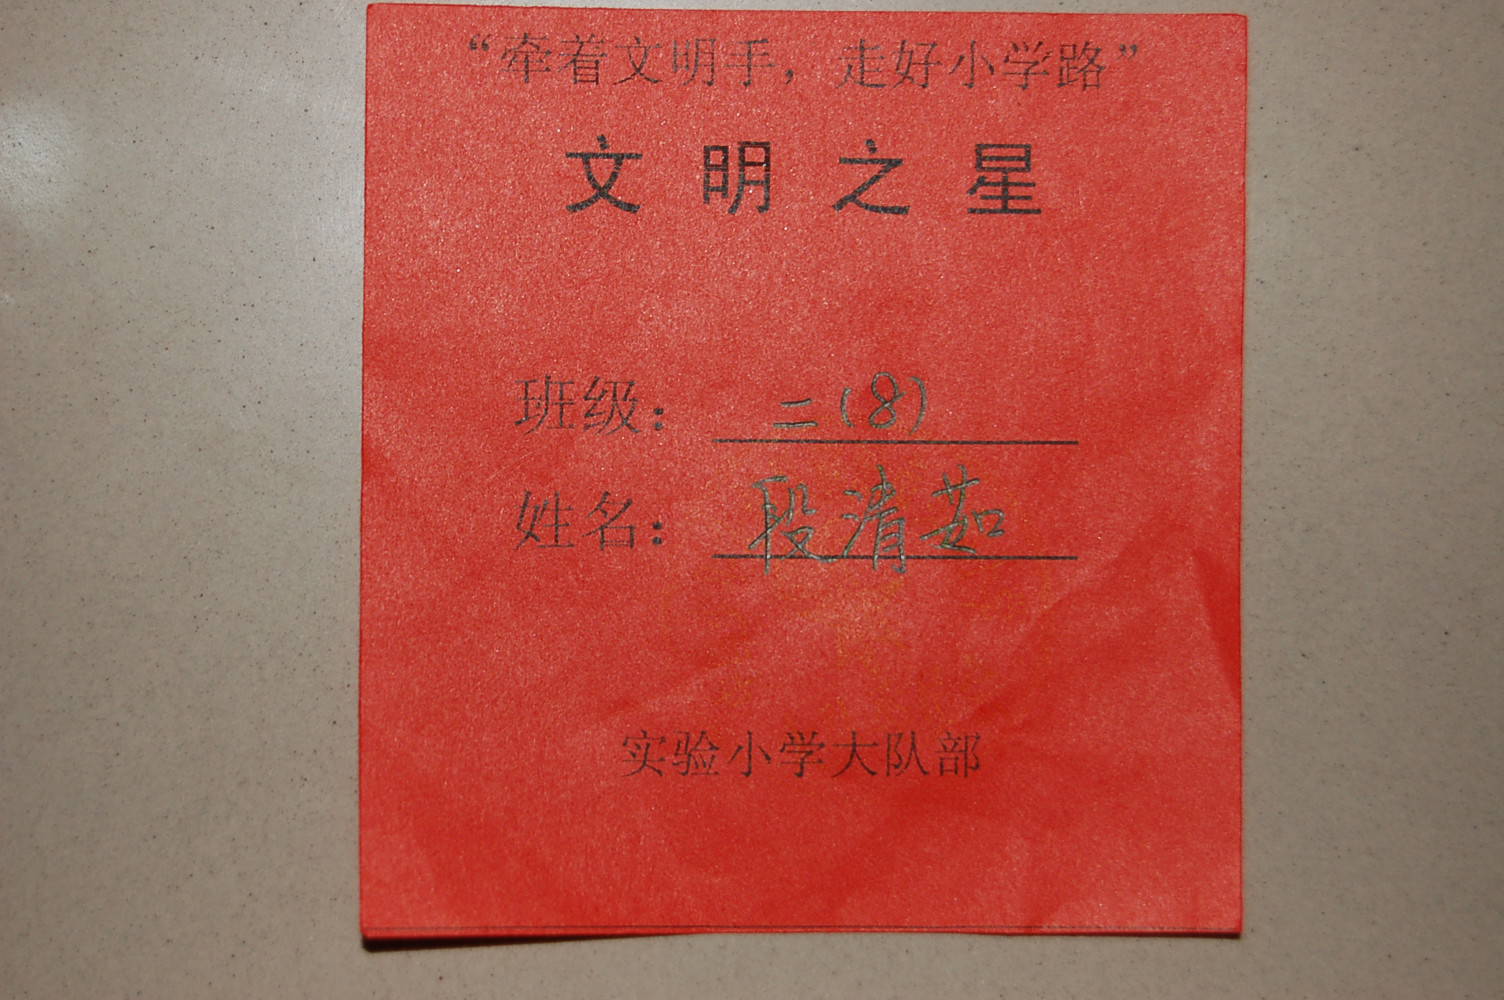 “牵着文明手，走好小学路”
文明之星
班级：二（8）
姓名：段清茹
实验小学大队部